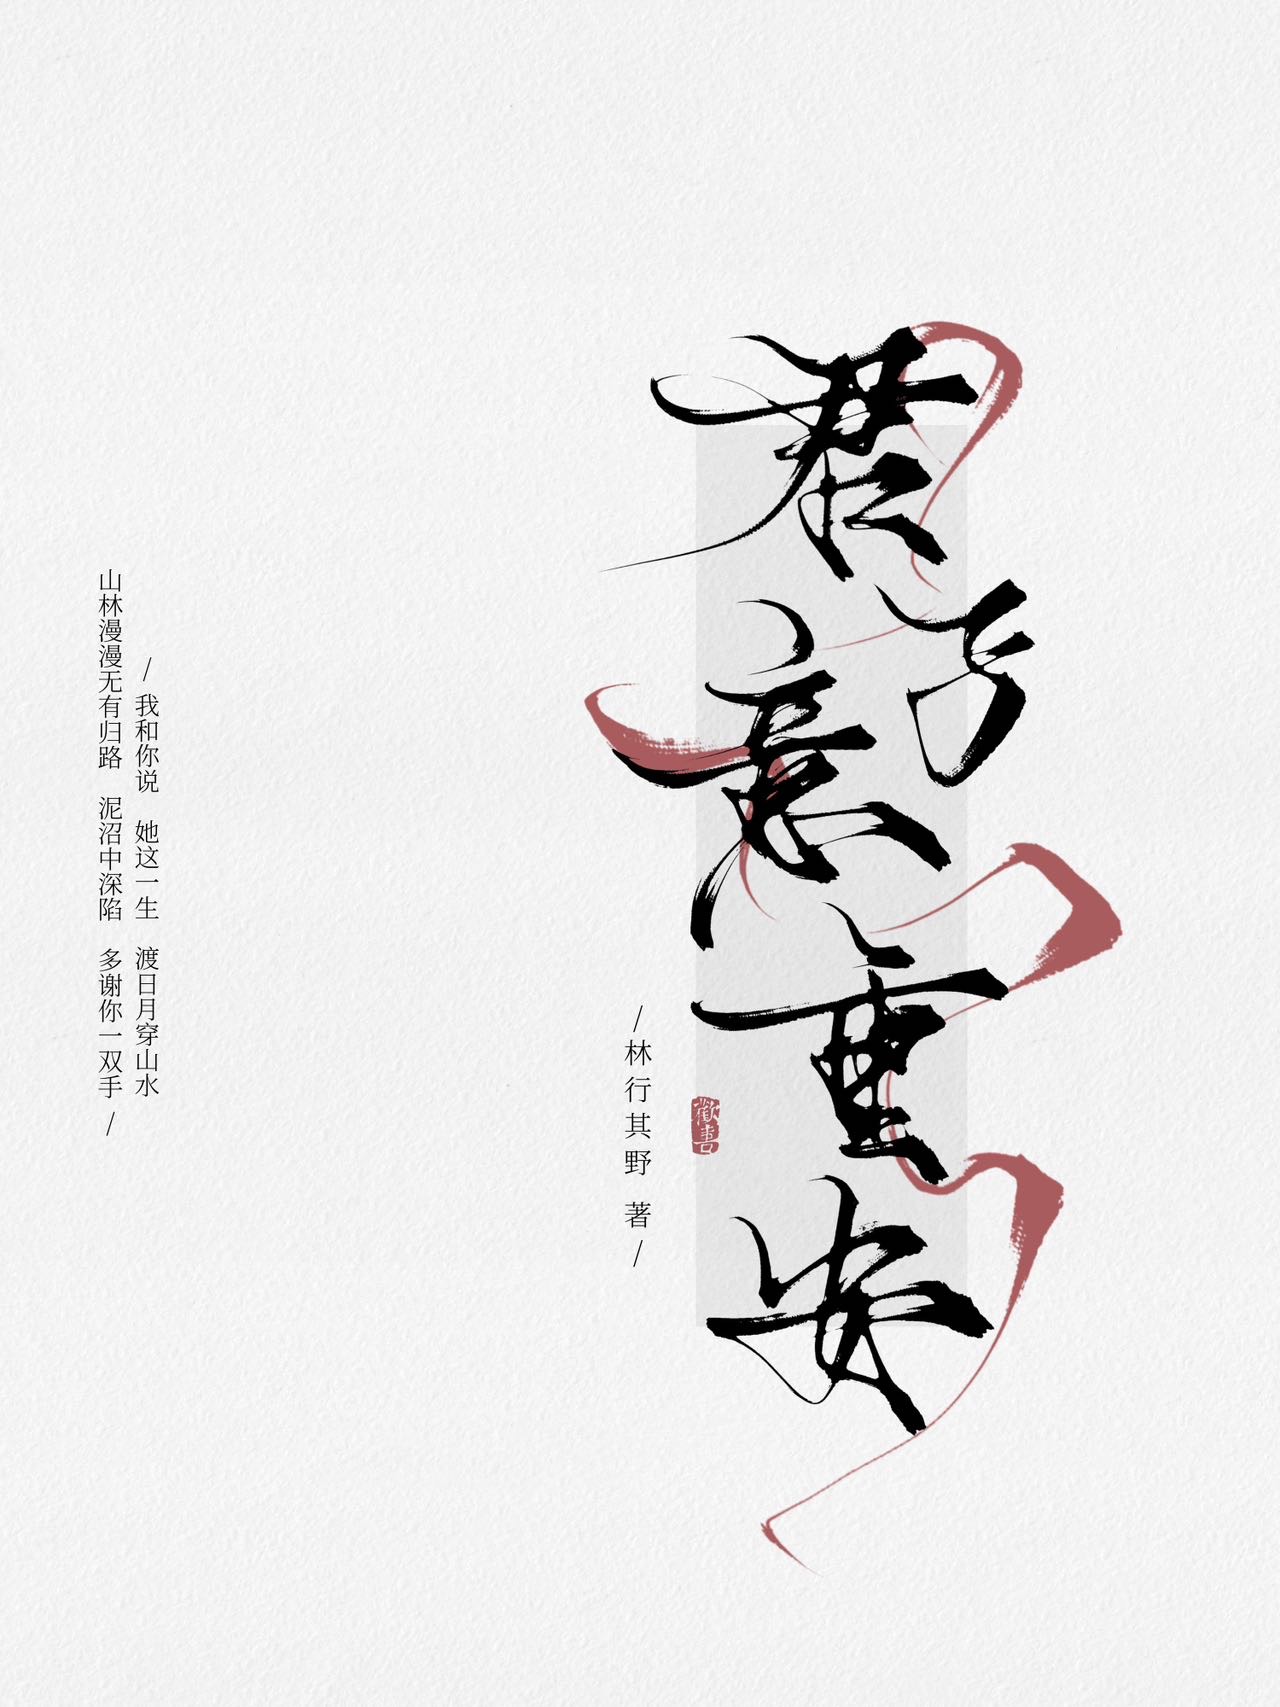 君
意重安
歡書
/林行其野 著/
/ 我和你说 她这一生 渡日月穿山水
山林漫漫无有归路 泥沼中深陷 多谢你一双手 /